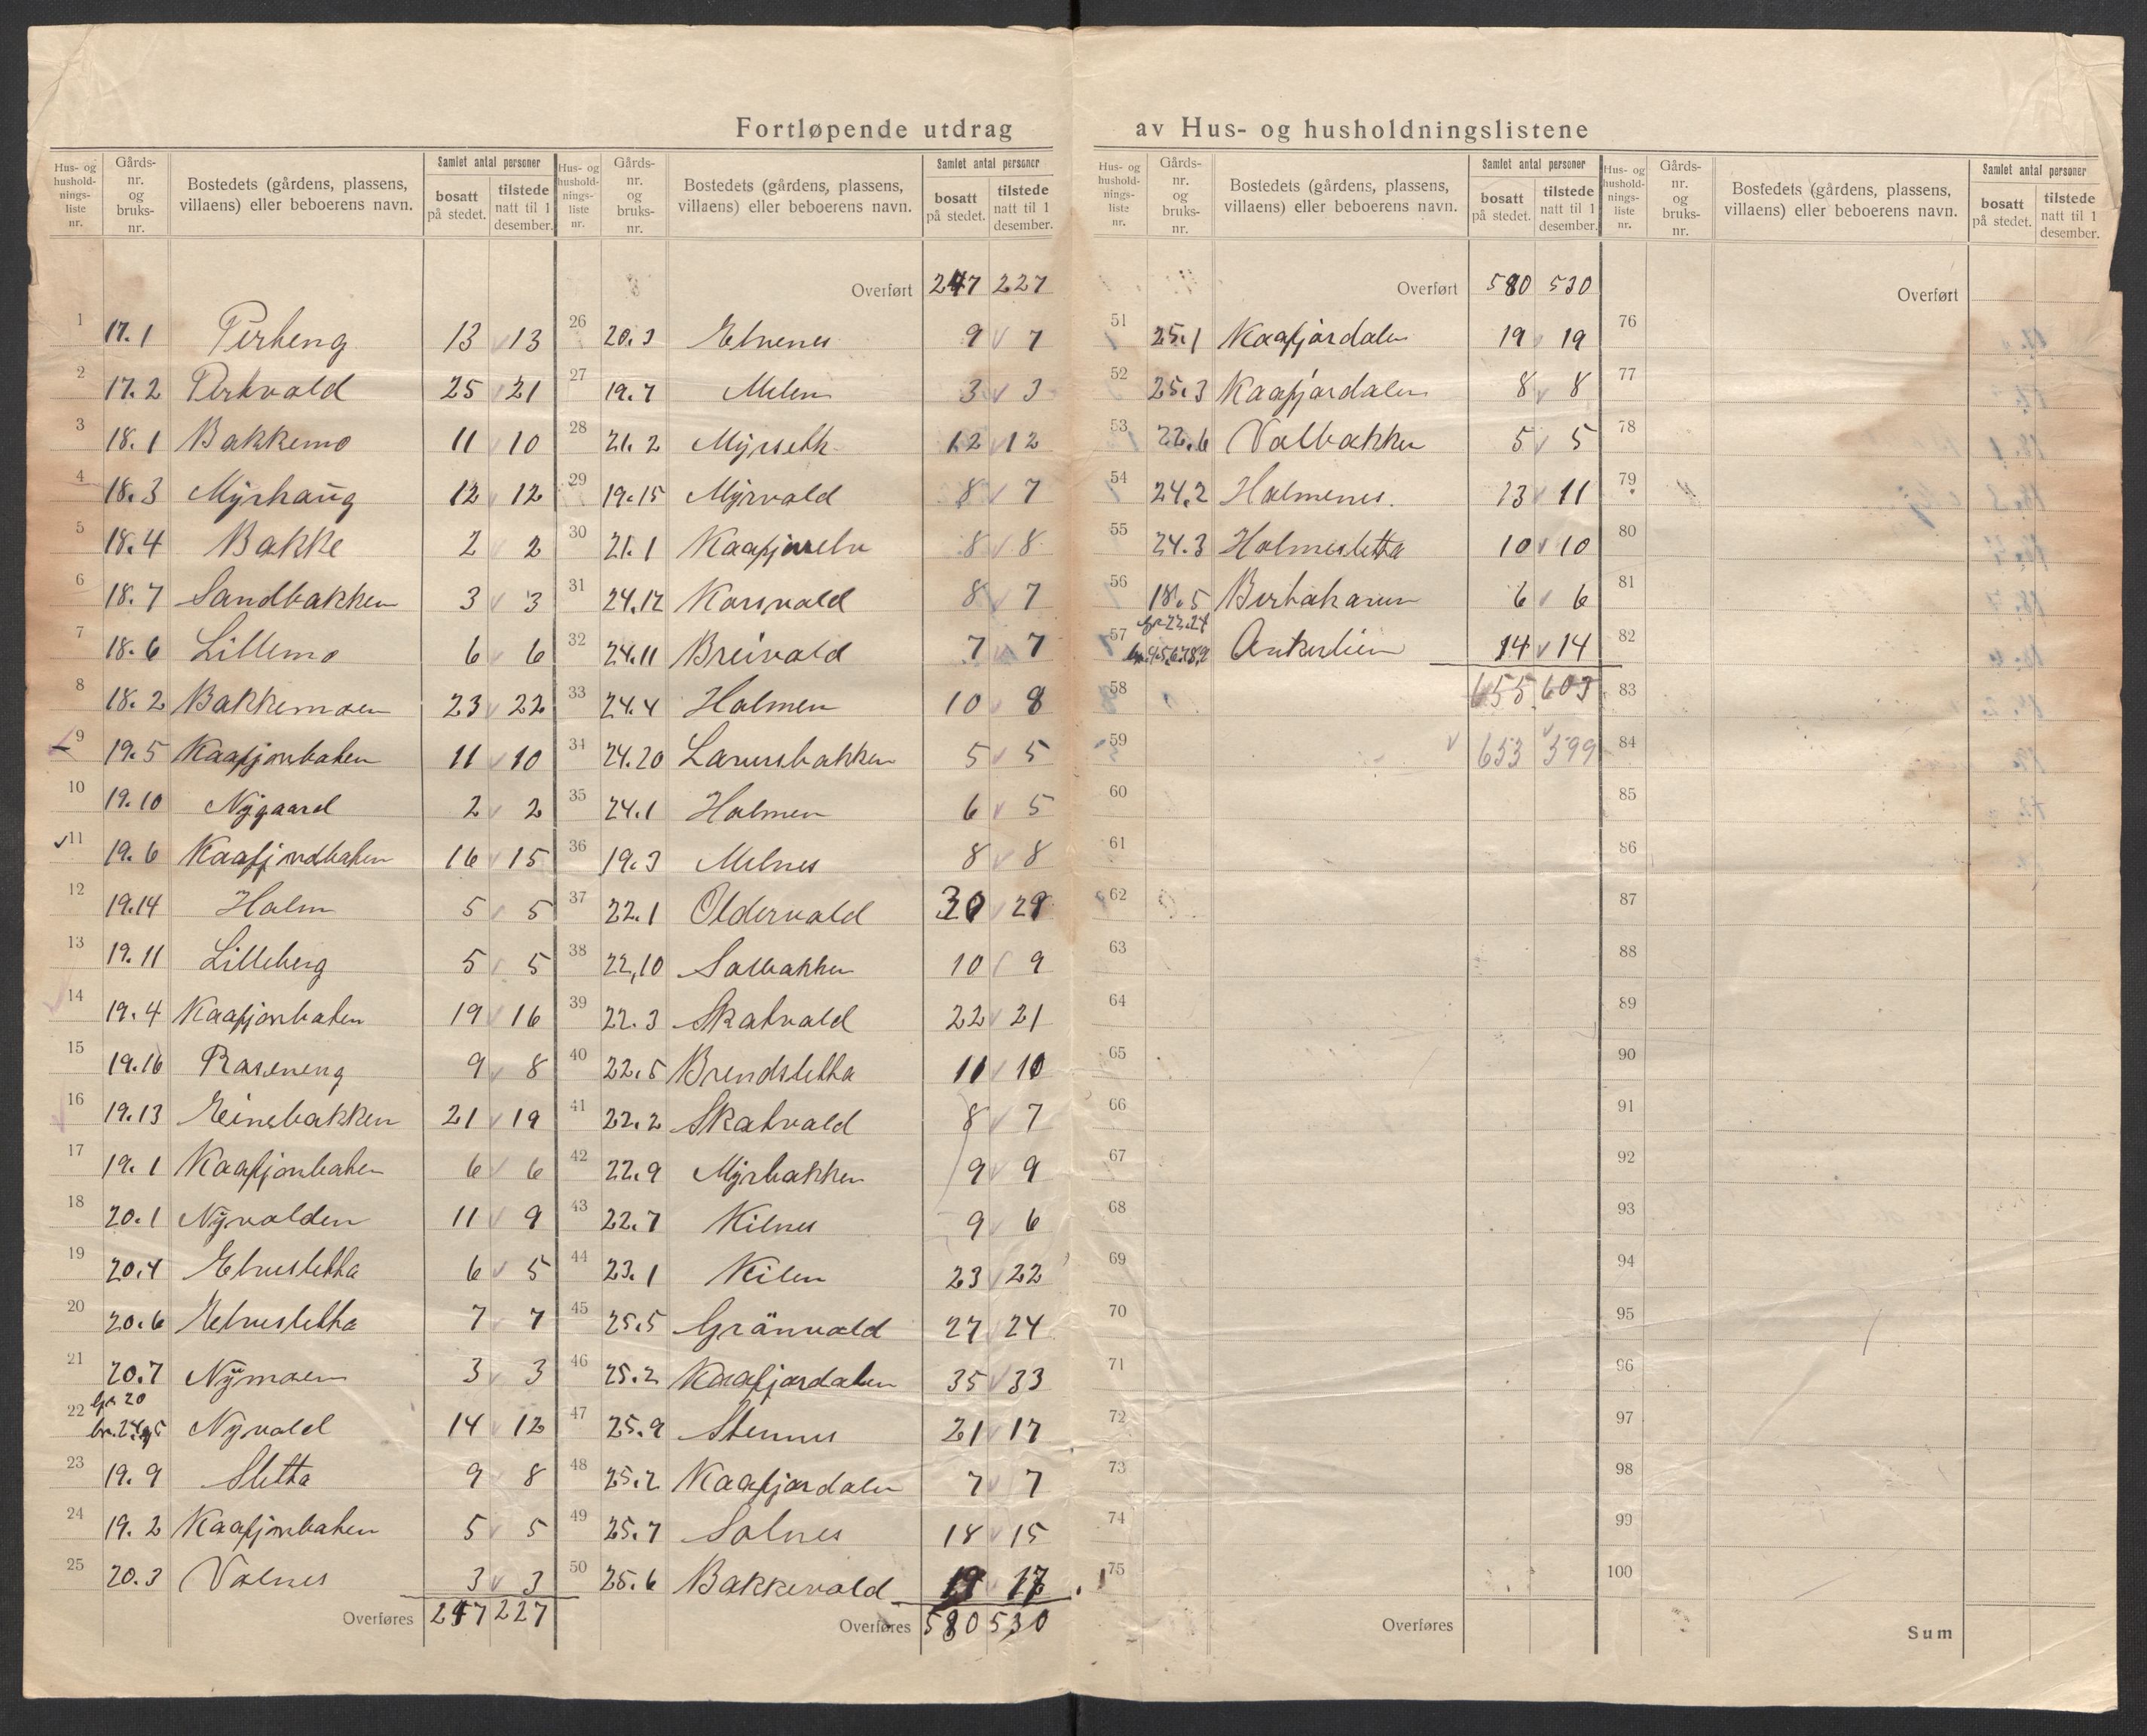 Fortløpende utdrag av Hus- og husholdningslistene
Hus- og hushold-nings-liste nr. | Gårds-nr. og bruks-nr. | Bostedets (gårdens, plassens, villaens) eller beboerens navn. | Samlet antal personer | bosatt på stedet. | tilstede natt til 1 desember.
1 17.1 Perheng 13 v 13
2 17.2 Perkvold 25 v 21
3 18.1 Bakkemo 11 v 10
4 18.3 Myrhaug 12 v 12
5 18.4 Bakke 2 v 2
6 18.7 Sandbakken 3 v 3
7 18.6 Lillemo 6 v 6
8 18.2 Bakkemoen 23 v 22
9 19.5 Kaafjonbaten 11 v 10
10 19.10 Nygaard 2 v 2
11 19.6 Kaafjordbaten 16 v 15
12 19.14 Holm 5 v 5
13 19.11 Lilleberg 5 v 5
14 19.4 Kaafjorbaten 19 v 16
15 19.16 Raseneng 9 v 8
16 19.13 Einebakken 21 v 19
17 19.1 Kaafjonbaten 6 v 6
18 20.1 Nyvolden 11 v 9
19 20.4 Elvesletta 6 v 5
20 20.6 Elvesletta 7 v 7
21 20.7 Nymoen 3 v 3
22 Gr. 20 Nyvold 14 v 12
23 19.9 Sletta 9 v 8
24 19.2 Kaafjonbaten 5 v 5
25 20.3 Volnes 3 v 3
Overføres 247 227
Hus- og hushold-nings-liste nr. | Gårds-nr. og bruks-nr. | Bostedets (gårdens, plassens, villaens) eller beboerens navn. | Samlet antal personer | bosatt på stedet. | tilstede natt til 1 desember.
Overført 247 227
26 20.3 Elvenes 9 v 7
27 19.7 Melen 3 v 3
28 21.2 Myrseth 12 v 12
29 19.15 Myrvold 8 v 7
30 21.1 Kaafjorelv 8 v 8
31 24.12 Korsvold 8 v 7
32 24.11 Breivold 7 v 7
33 24.4 Holmen 10 v 8
34 24.20 Larsusbakken 5 v 5
35 24.1 Holmen 6 v 5
36 19.3 Melnes 8 v 8
37 22.1 Oldervold 30 v 29
38 22,10 Solbakken 10 v 9
39 22.3 Skatvold 22 v 21
40 22.5 Brendsletta 11 v 10
41 22.2 Skatvold 8 v 7
42 22.9 Myrbakken 9 v 9
43 22.7 Kilnes 9 v 6
44 23.1 Kilen 23 v 22
45 25.5 Grönvold 27 v 24
46 25.2 Kaafjordalen 35 v 33
47 25.9 Stennes 21 v 17
48 25.2 Kaafjordalen 7 v 7
49 25.7 Solnes 18 v 15
50 25.6 Bakkevold 19 v 17
Overføres 580 530
Hus- og hushold-nings-liste nr. | Gårds-nr. og bruks-nr. | Bostedets (gårdens, plassens, villaens) eller beboerens navn. | Samlet antal personer | bosatt på stedet. | tilstede natt til 1 desember.
Overført 580 530
51 25.1 Kaafjordalen 19 v 19
52 25.3 Kaafjordalen 8 v 8
53 22.6 Volbakken 5 v 5
54 24.2 Holmenes. 13 v 11
55 24.3 Holmesletta 10 v 10
56 18.5 Birtakarun 6 v 6
57 Gr. 22.24 br. 4.5.6.7.8.9 Ankerlien 14 v 14
58 655 603
59 v 653 v 599
60
61
62
63
64
65
66
67
68
69
70
71
72
73
74
75
Overføres
Hus- og hushold-nings-liste nr. | Gårds-nr. og bruks-nr. | Bostedets (gårdens, plassens, villaens) eller beboerens navn. | Samlet antal personer | bosatt på stedet. | tilstede natt til 1 desember.
Overført
76
77
78
79
80
81
82
83
84
85
86
87
88
89
90
91
92
93
94
95
96
97
98
99
100
Sum